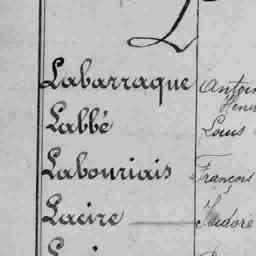 L
Labarraque Antoin
Henri
Labbé Louis
Labouriais François
Lacire Isidore